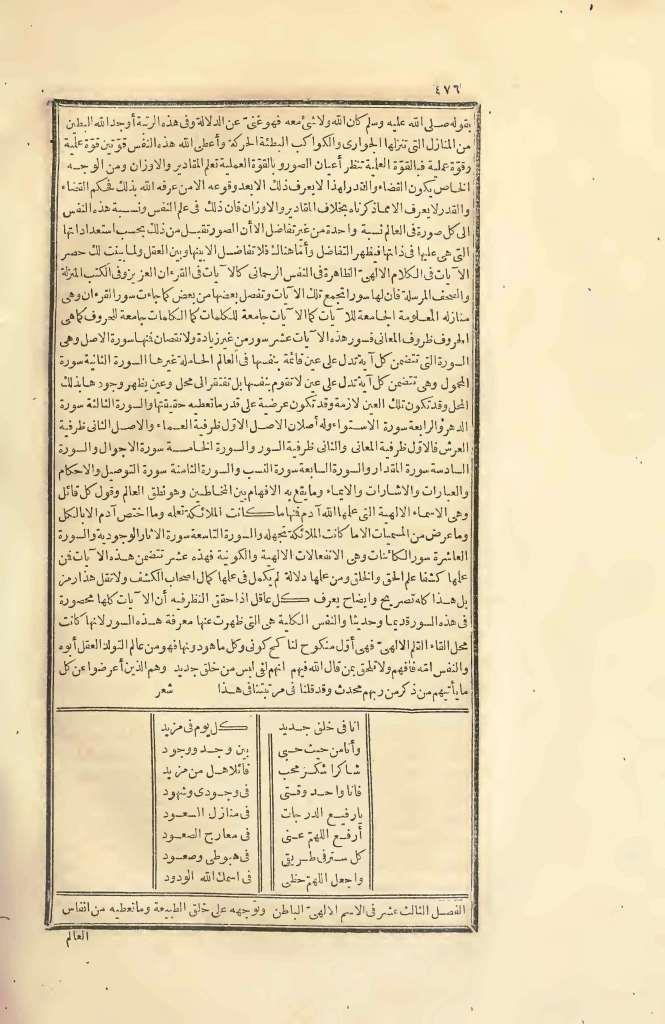 ٤٧٦
بقوله صلى الله عليه وسلم كان الله ولا شئ معه فهو غنىّ عن الدلالة وفى هذه الرتبة أوجد الله البطين
من المنازل التى تنزلها الجوارى والكواكب البطئة الحركة وأعطى الله هذه النفس قوّتين قوّة علمية
وقوّة عملية فبالقوّة العملية تظهر أعيان الصور وبالقوّة العلمية تعلم المقادير والاوزان ومن الوجه
الخاص يكون القضاء والقدر ولهذا لا يعرف ذلك الا بعد وقوعه الا من عرفه الله بذلك فحكم القضاء
والقدر لا يعرف الا مما ذكرناه بخلاف المقادير والاوزان فان ذلك فى علم النفس ونسبة هذه النفس
الى كل صورة فى العالم نسبة واحدة من غير تفاضل الا أن الصور تقبل من ذلك بحسب استعداداتها
التى هى عليها فى ذاتها فيظهر التفاضل وأما هناك فلا تفاضل الا بينها وبين العقل ولما بينت لك حصر
الآيات فى الكلام الالهىّ الظاهرة فى النفس الرحمانى كالآيات فى القرءان العزيز وفى الكتب المنزلة
والصحف المرسلة فان لها سورا تجمع تلك الآيات وتفصل بعضها من بعض كما جاءت سور القرءان وهى
منازله المعلومة الجامعة للآيات كما الآيات جامعة للكلمات كما الكلمات جامعة للحروف كما هى
الحروف ظروف المعانى فسور هذه الآيات عشر سور من غير زيادة ولا نقصان فمنها سورة الاصل وهى
السورة التى تتضمن كل آية تدل على عين قائمة بنفسها فى العالم الحاملة غيرها السورة الثانية سورة
المحمول وهى تتضمن كل آية تدل على عين لا تقوم بنفسها بل تفتقر الى محل وعين يظهر وجودها بذلك
المحل وقد تكون تلك العين لازمة وقد تكون عرضية على قدر ما تعطيه حقيقتها والسورة الثالثة سورة
الدهر والرابعة سورة الاستواء وله أصلان الاصل الاوّل ظرفية العماء والاصل الثانى ظرفية
العرش فالاوّل ظرفية المعانى والثانى ظرفية الصور والسورة الخامسة سورة الاحوال والسورة
السادسة سورة المقدار والسورة السابعة سورة النسب والسورة الثامنة سورة التوصيل والاحكام
والعبارات والاشارات والايماء وما يقع به الافهام بين المخاطبين وهو نطق العالم وقول كل قائل
وهى الاسماء الالهية التى علمها الله آدم فمنها ما كانت الملائكة تعلمه وما اختص آدم الا بالكل
وما عرض من المسميات الا ما كانت الملائكة تجهله والسورة التاسعة سورة الآثار الوجودية والسورة
العاشرة سور الكائنات وهى الانفعالات الالهية والكونية فهذه عشر تتضمن هذه الآيات فمن
علمها كشفا علم الحق والخلق ومن علمها دلالة لم يكمل فى علمها كمال اصحاب الكشف ولا تقل هذا رمز
بل هذا كله تصريح وايضاح يعرف كل عاقل اذا حقق النظر فيه أن الآيات كلها محصورة
فى هذه السور قديما وحديثا والنفس الكلية هى التى ظهرت عنها معرفة هذه السور لانها كانت
محل القاء القلم الالهىّ فهى أوّل منكوح لناكح كونى وكل ما هو دونها فهو من عالم التولد العقل أبوه
والنفس امّه فافهم ولا تلحق بمن قال الله فيهم انهم لفى لبس من خلق جديد وهم الذين أعرضوا عن كل
ما يأتيهم من ذكر من ربهم محدث وقد قلنا فى مرتبتنا فى هذا شعر
انا فى خلق جديد كل يوم فى مزيد
وأنا من حيث حبى بين وجد ووجود
شاكرا شكر محب قائلا هل من مزيد
فانا واحد وقتى فى وجودى وشهود
يا رفيع الدرجات فى منازل السعود
أرفع اللهمّ عنى فى معارج الصعود
كل ستر فى طريقى فى هبوطى وصعود
واجعل اللهمّ حظى فى اسمك الله الودود
الفصل الثالث عشر فى الاسم الالهىّ الباطن وتوجهه على خلق الطبيعة وما تعطيه من انفاس
العالم